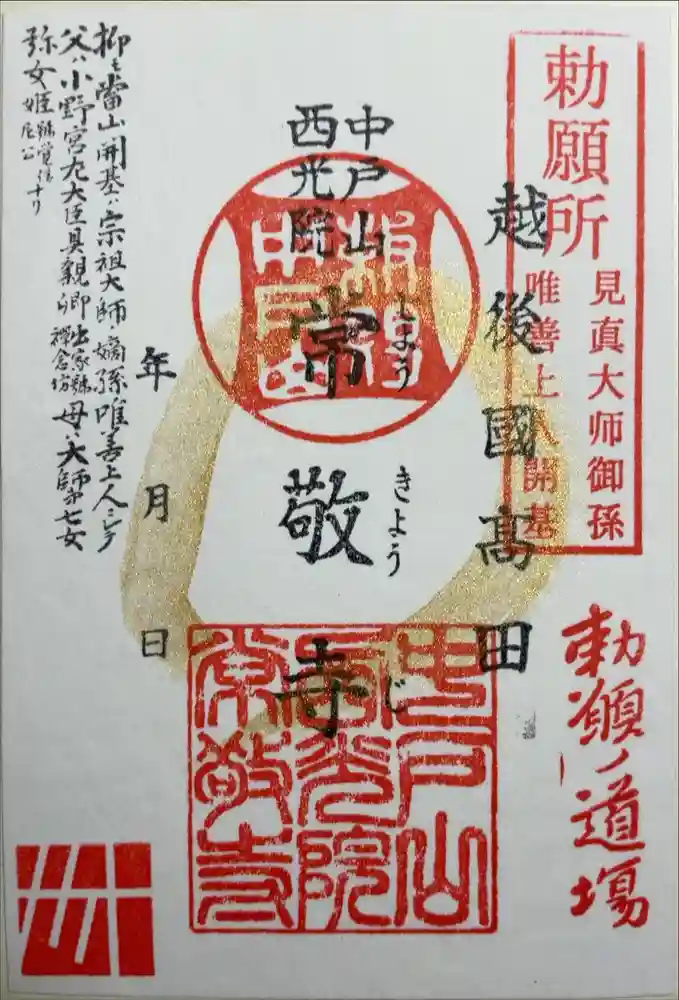 勅願所
見真大师御孫
唯善上人開基
勅願ノ道場
越後國高田
中戸山
西光院
常敬寺
じょう
きょう
じ
中戸山
西光院
常敬寺
年 月 日
抑モ當山開基ハ宗祖大師嫡孫唯善上人ニシテ
父ハ小野宮左大臣具親卿出家號禅念坊母ハ大師第七女
弥女姫